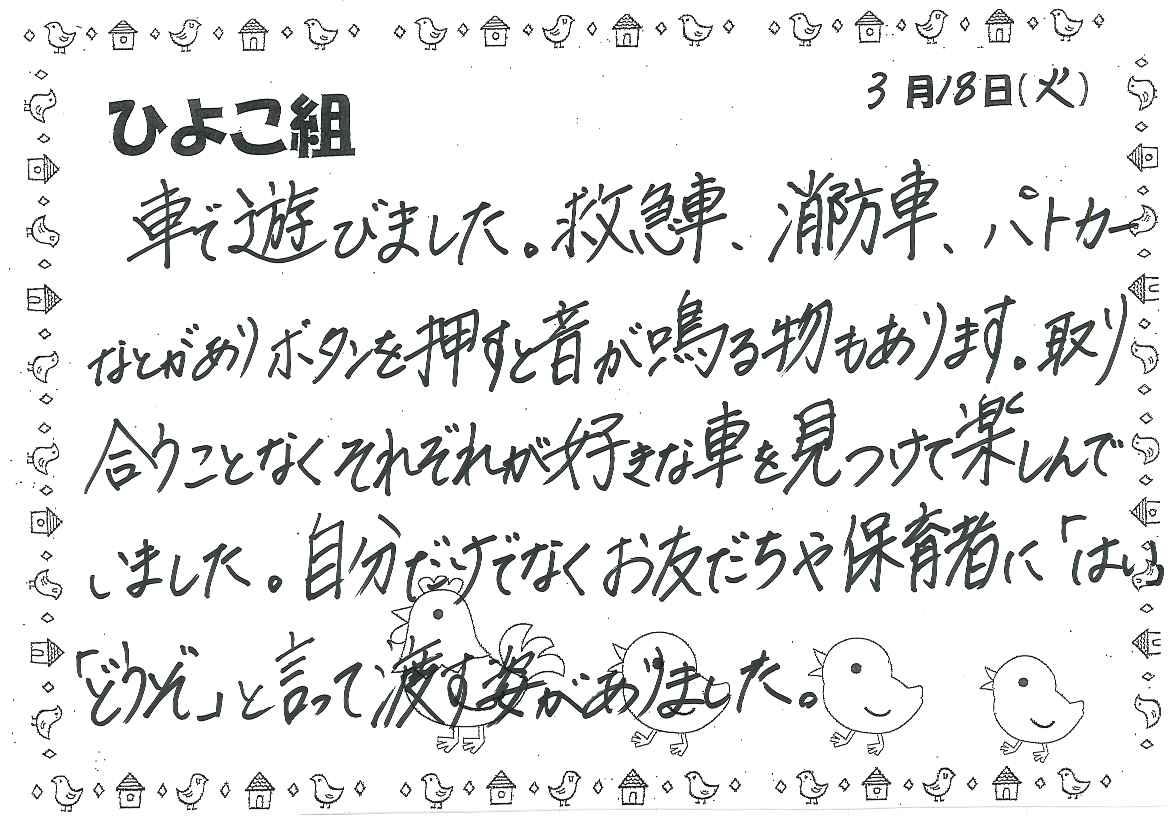 3月18日(火)
ひよこ組
車で遊びました。救急車、消防車、パトカー
などがありボタンを押すと音が鳴る物もあります。取り
合うことなくそれぞれが好きな車を見つけて楽しんで
いました。自分だけでなくお友だちや保育者に「はい」
「どうぞ」と言って渡す姿がありました。